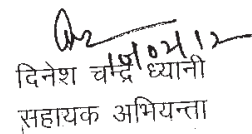 19/02/12
दिनेश चन्द्र ध्यानी
सहायक अभियन्ता